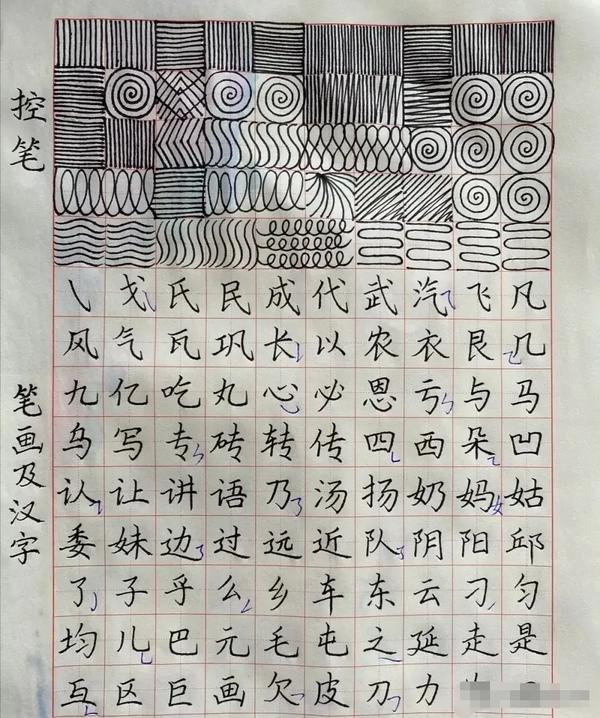 控笔
笔画及汉字
㇂戈氏民成代武汽飞凡
风气瓦巩长以农衣艮几
九亿吃丸心必恩亏与马
乌写专砖转传四西朵凹
认让讲语乃汤扬奶妈姑
委妹边过远近队阴阳邱
了子乎么乡车东云刁匀
均儿巴元毛屯之延走是
互区巨画欠皮刀力